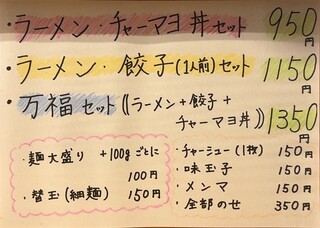 ・ラーメン・チャーマヨ丼セット 950円
・ラーメン・餃子(1人前)セット 1150円
・万福セット《ラーメン+餃子+
チャーマヨ丼》1350円
・麺大盛り +100gごとに
100円
・替玉(細麺) 150円
・チャーシュー(1枚) 150円
・味玉子 150円
・メンマ 150円
・全部のせ 350円